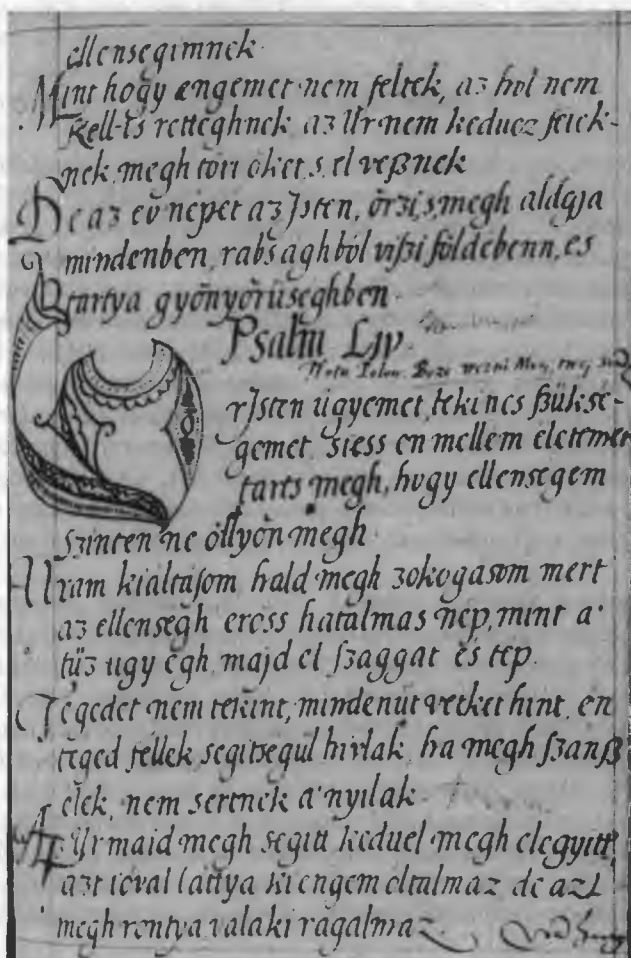 ellensegimnek.
Mint hogy engemet nem feltek, az hol nem
kell-Es retteghnek, az Ur nem keduez feiek-
nek, megh töri öket, s, el veßnek
De az eö népet az Isten, örzi, s, megh aldgja
mindenben, rabsaghból vißi földebenn, es
tartya gyönyörüseghben.
Psalm Ljv.
rIsten ügyemet, tekincs ßükse-
gemet, siess en mellem eletemet
tarts megh, hogy ellensegem
szinten ne öllyön megh
Uram kialtasom hald megh zokogasom mert
az ellensegh eröss hatalmas nep, mint a'
tüz ugy égh, majd el szaggat és tép.
Tegedet nem tekint, mindenüt vetket hint, én
teged fellek, segitsegül hivlak, ha megh szanß
elek, nem sertnek a' nyilak.
Ur maid megh segitt keduel megh elegyitt,
azt ioval lattya ki engem oltalmaz de azt
megh rontya valaki ragalmaz.